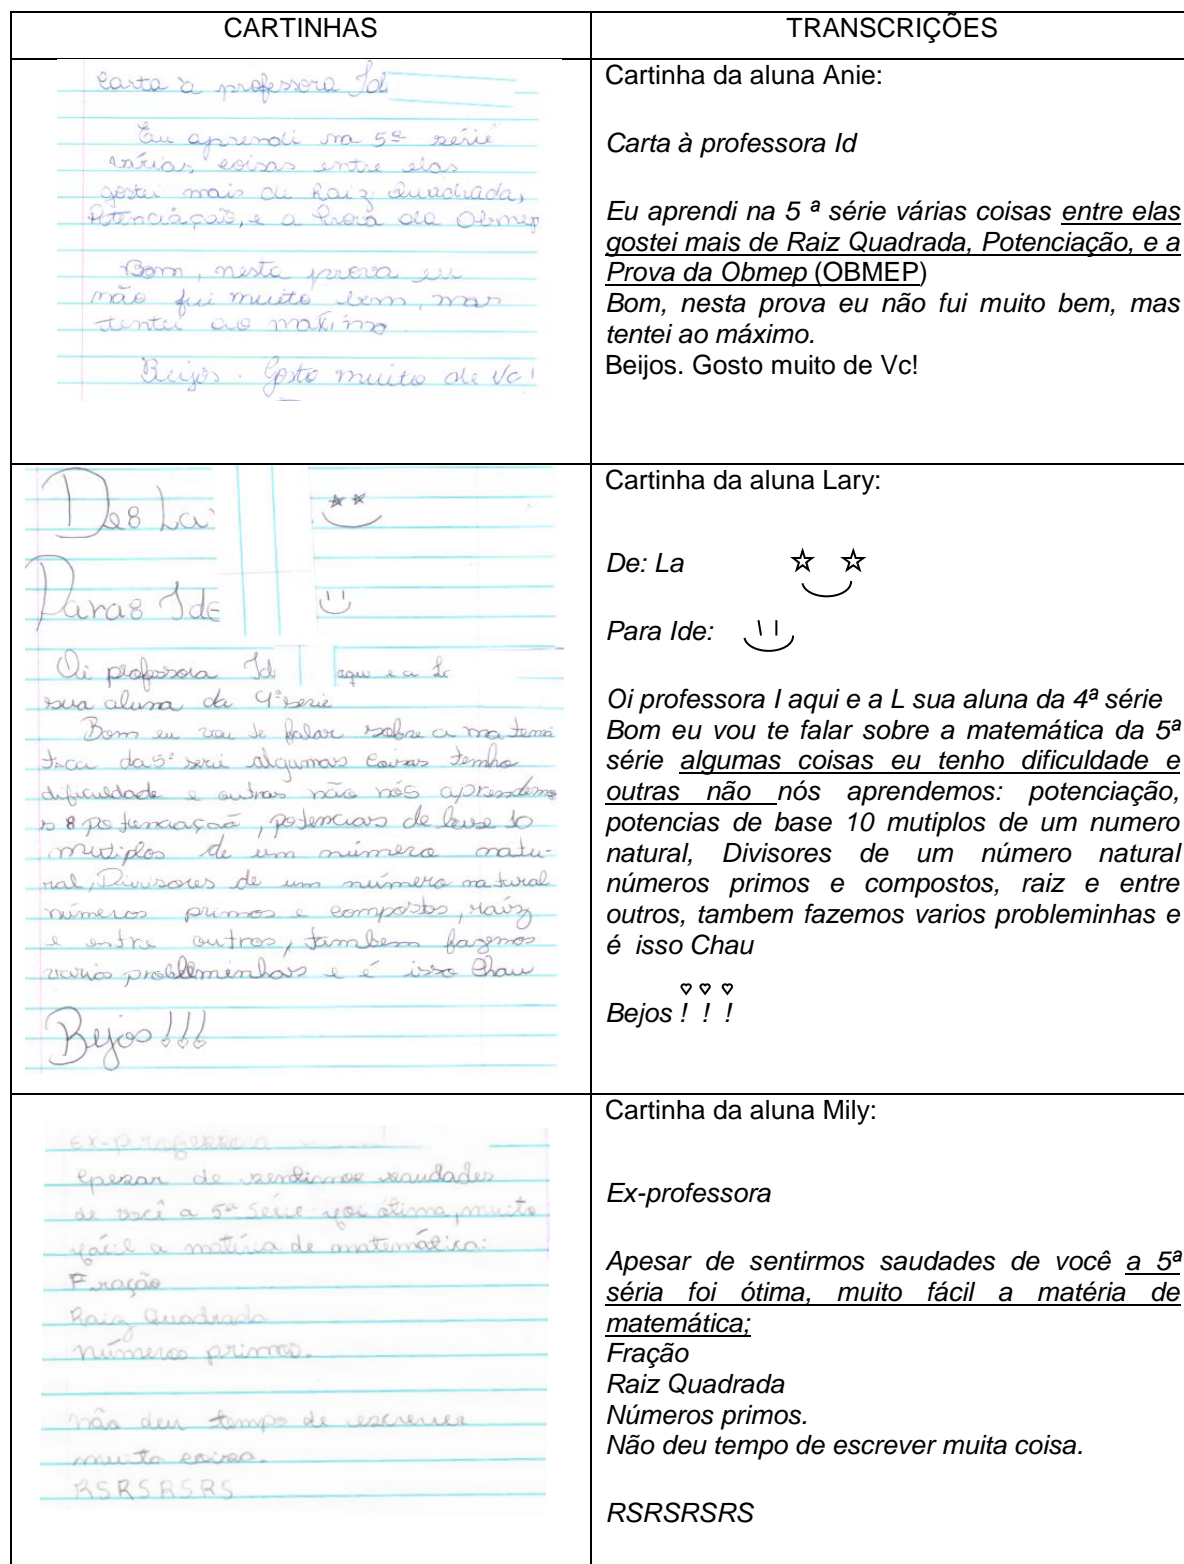 CARTINHAS
TRANSCRIÇÕES
Carta à professora Id
Eu aprendi na 5ª série
várias coisas entre elas
gostei mais de Raiz Quadrada,
Potenciação, e a Prova da Obmep
Bom, nesta prova eu
não fui muito bem, mas
tentei ao maximo.
Beijos. Gosto muito de Vc!
Cartinha da aluna Anie:
Carta à professora Id
Eu aprendi na 5 ª série várias coisas entre elas
gostei mais de Raiz Quadrada, Potenciação, e a
Prova da Obmep (OBMEP)
Bom, nesta prova eu não fui muito bem, mas
tentei ao máximo.
Beijos. Gosto muito de Vc!
De: La
Para: Ide
Oi professora Id aqui e a
sua aluna da 4ª serie
Bom eu vou te falar sobre a matemá
tica da 5ª serie algumas coisas tenho
dificuldade e outras não nós aprendemo
s: potenciação, potencias de base 10
mutiplos de um número natu-
ral, Divisores de um número natural
números primos e compostos, raiz
e entre outros, tambem fazemos
varios probleminhas e é isso Chau
Bejos!!!
Cartinha da aluna Lary:
De: La
Para Ide:
Oi professora I aqui e a L sua aluna da 4ª série
Bom eu vou te falar sobre a matemática da 5ª
série algumas coisas eu tenho dificuldade e
outras não nós aprendemos: potenciação,
potencias de base 10 mutiplos de um numero
natural, Divisores de um número natural
números primos e compostos, raiz e entre
outros, tambem fazemos varios probleminhas e
é isso Chau
Bejos ! ! !
Ex-professora
Apesar de sentirmos saudades
de você a 5ª Série foi ótima, muito
fácil a matéria de matemática:
Fração
Raiz Quadrada
números primos.
não deu tempo de escrever
muita coisa.
RSRSRSRS
Cartinha da aluna Mily:
Ex-professora
Apesar de sentirmos saudades de você a 5ª
séria foi ótima, muito fácil a matéria de
matemática;
Fração
Raiz Quadrada
Números primos.
Não deu tempo de escrever muita coisa.
RSRSRSRS